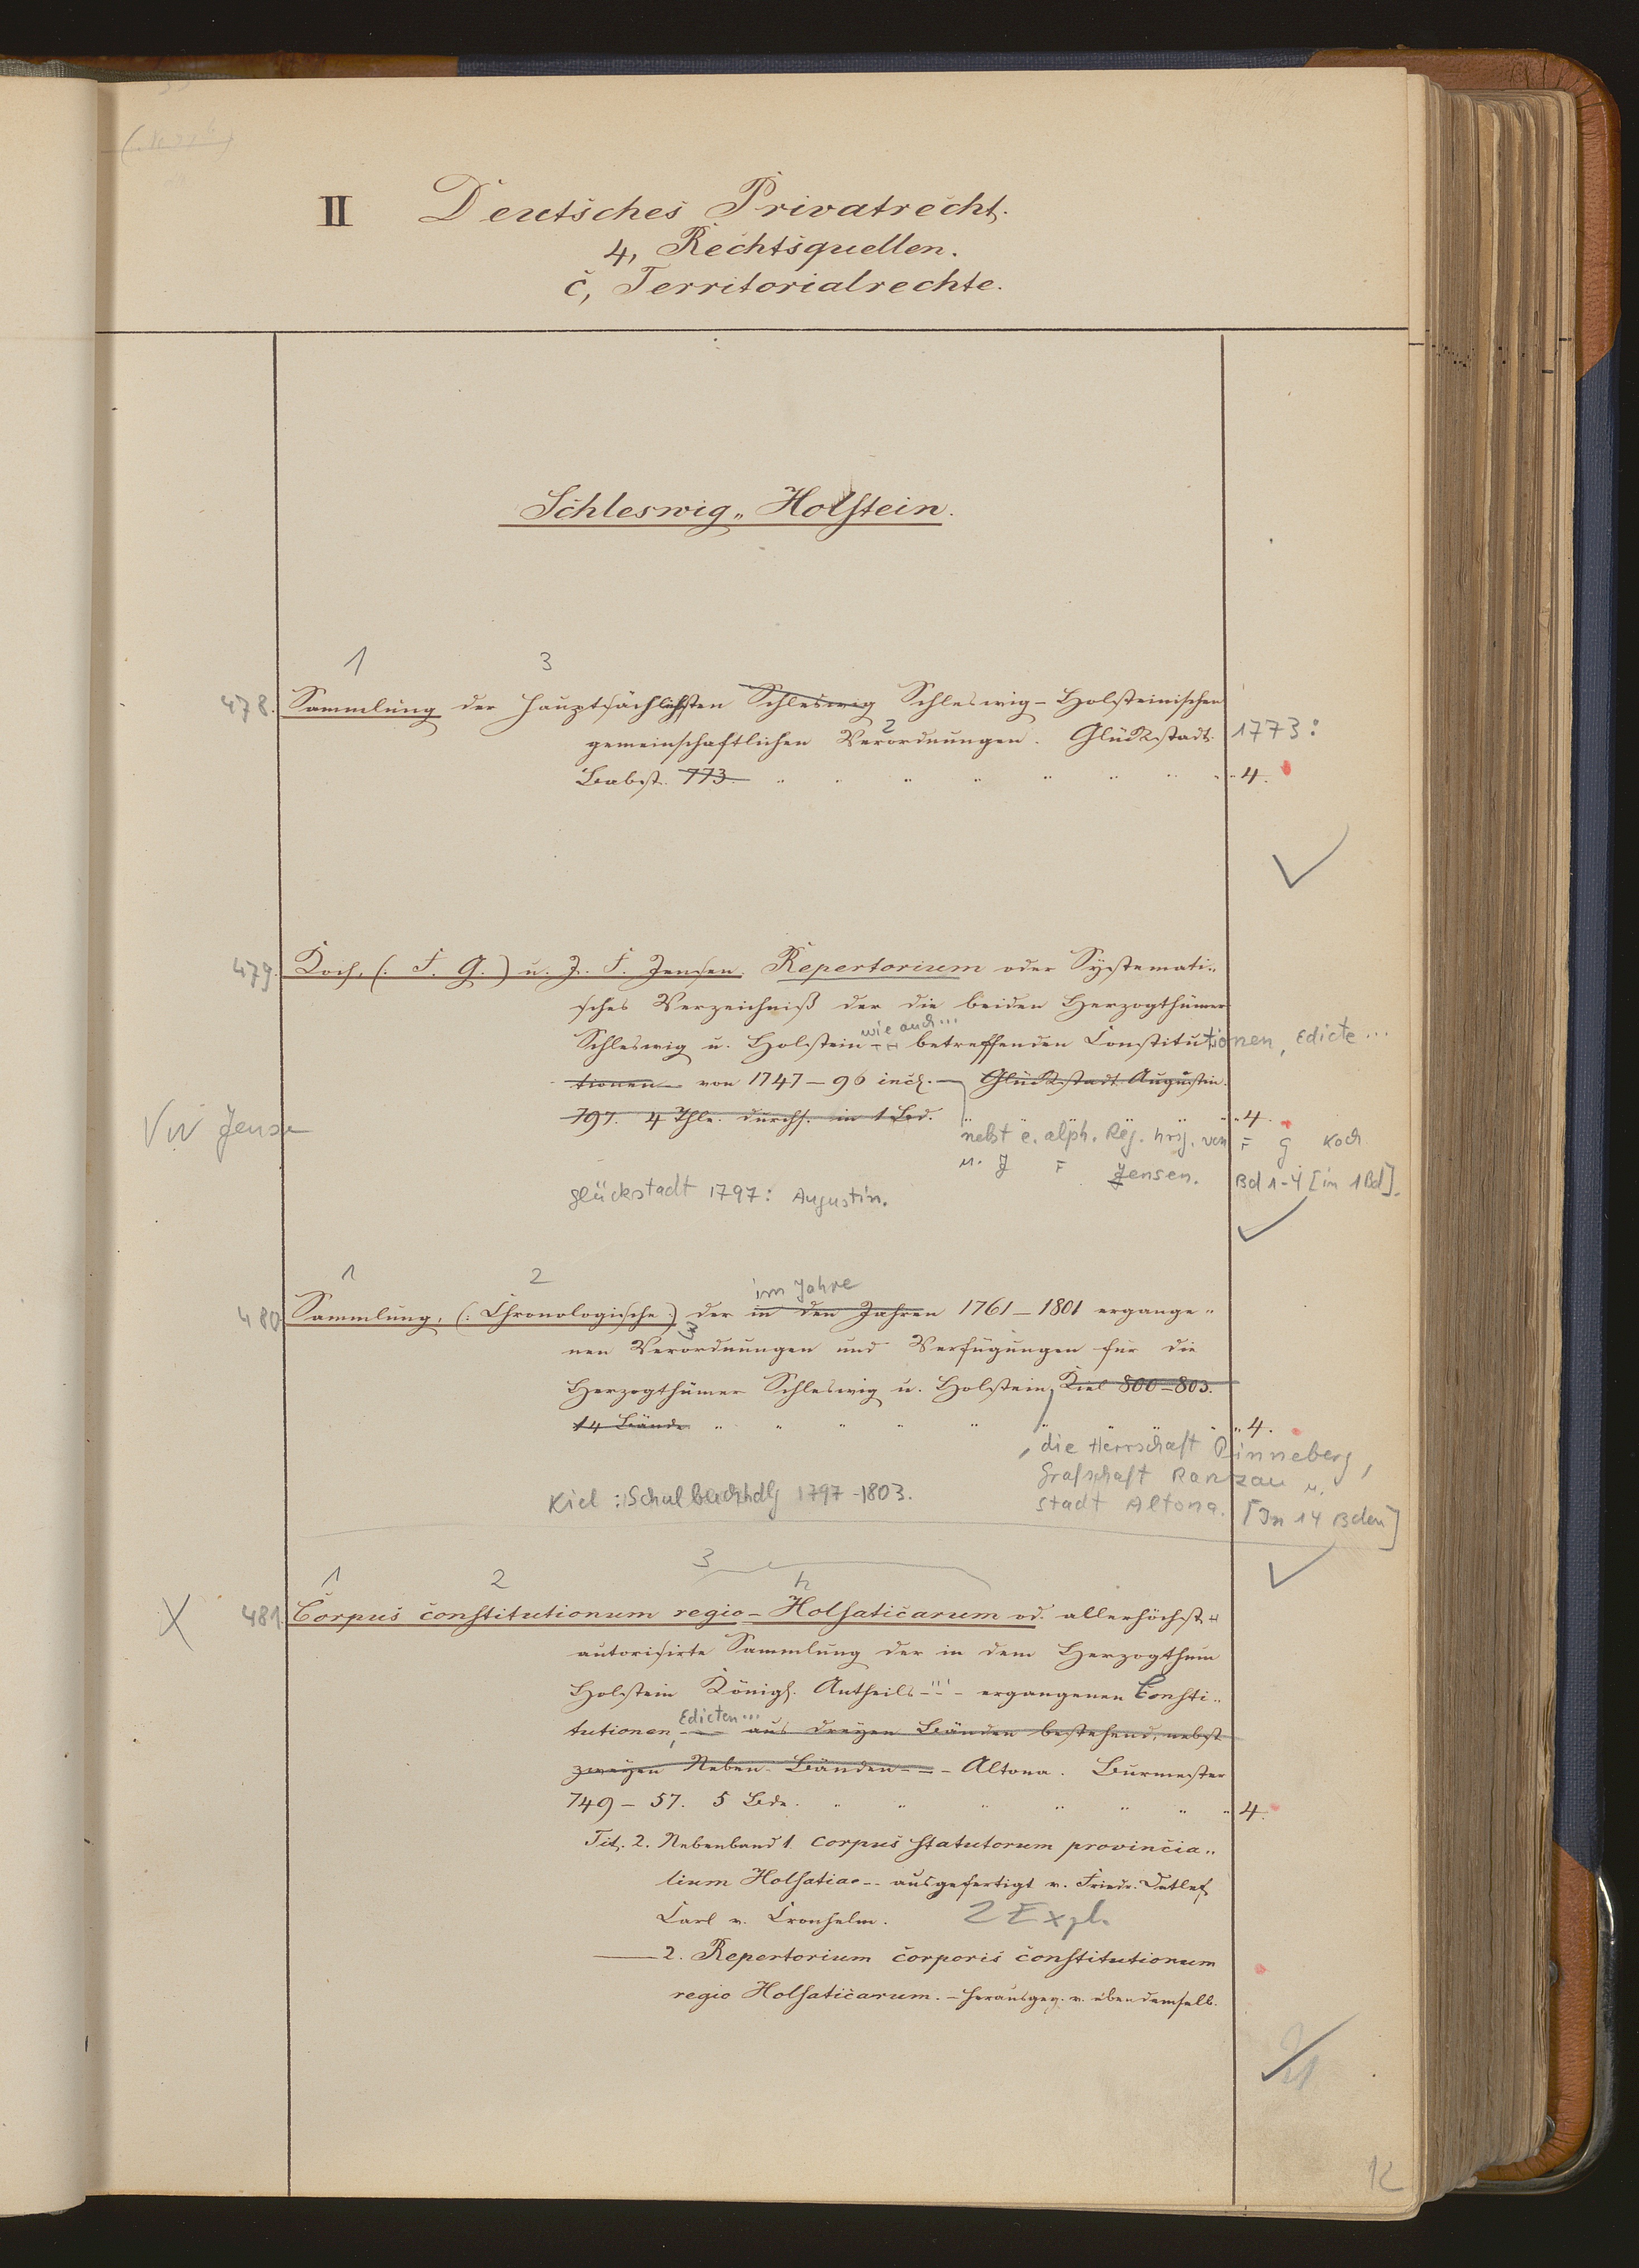 II Deutsches Privatrecht.
4, Rechtsquellen.
c, Territorialrechte.
Schleswig„ Holstein.
1 3
478. Sammlung der hauptsächlichsten Schleswig Schleswig-Holsteinischen
2
gemeinschaftlichen Verordnungen. Glückstadt. 1773:
Babst. 773. 4.
479. Koch, (: F. G.) u. J. F. Jensen. Repertorium oder Systemati„
sches Verzeichniß der die beiden Herzogthümer
wie auch...
Schleswig u. Holstein -- betreffenden Constitutionen, Edicte...
tionen - von 1747-96 incl. - Glückstadt Augustin.
797. 4 Thle. durchs. in 1 Bd. 4.
VW Jensen
nebst e. alph. Reg. hrsg. von F G Koch
u. J F Jensen. Bd 1-4 [in 1 Bd].
Glückstadt 1797: Augustin.
1 2
im Jahre
480 Sammlung, (: Chronologische) der in den Jahren 1761-1801 ergange„
3
nen Verordnungen und Verfügungen für die
Herzogthümer Schleswig u. Holstein, Kiel 800-803.
14 Bände 4.
, die Herrschaft Pinneberg,
Grafschaft Ranzau u.
Kiel: Schulbuchhdlg 1797-1803. Stadt Altona. [In 14 Bden]
3
1 2 h
X 481. Corpus constitutionum regio-Holsaticarum od. allerhöchst„
autorisirte Sammlung der in dem Herzogthum
Holstein Königl. Antheils -"- ergangenen Consti„
Edicten...
tutionen, -- aus dreyen Bänden bestehend, nebst
zweyen Neben-Bänden -- Altona. Burmester
749-57. 5 Bde. 4.
Tit. 2. Nebenband 1. Corpus statutorum provincia„
lium Holsatiae -- ausgefertigt v. Friedr. Detlef
Carl v. Cronhelm. 2 Expl.
— 2. Repertorium corporis constitutionum
regio Holsaticarum. - herausgeg. v. ebendemselb.
12